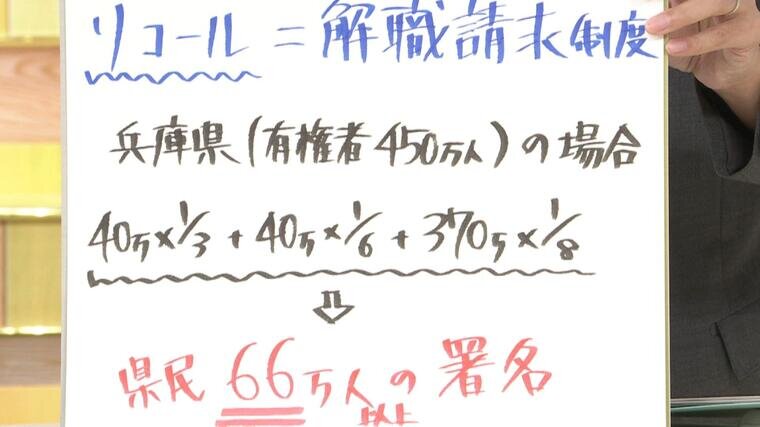 リコール = 解職請求制度
兵庫県(有権者450万人)の場合
40万×1/3 + 40万×1/6 + 370万×1/8
⇩
県民66万人以上の署名